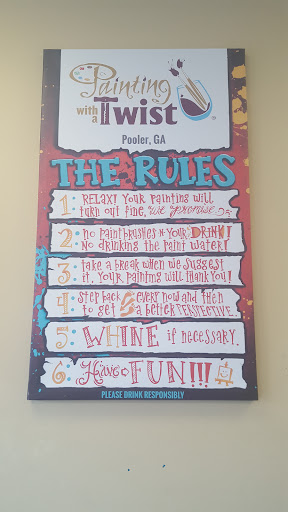 Painting
with a
Twist
Pooler, GA
THE RULES
1: RELAX! Your painting will
turn out fine, we promise
2: no paintbrushes in your DRINK!
No drinking the paint water!
3: take a break when we suggest
it. Your painting will thank you!
4: step back every now and then
to get a better PERSPECTIVE.
5: WHINE if necessary.
6: Have FUN!!!
PLEASE DRINK RESPONSIBLY